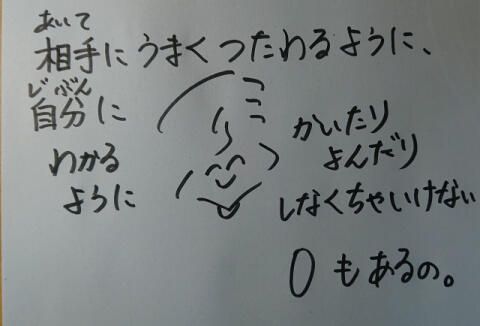 あいて
相手にうまくつたわるように、
じぶん
自分に
わかる
ように
かいたり
よんだり
しなくちゃいけない
0もあるの。